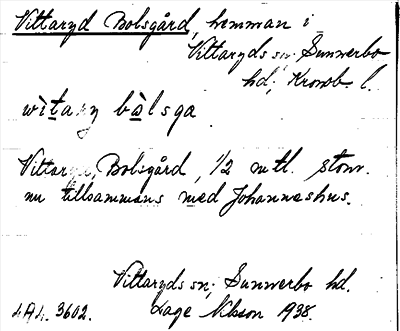 Vittaryd Bolsgård, hemman i
Vittaryds sn; Sunnerbo
hd; Kronob. l.
witary bàlsga
Vittaryd, Bolsgård, 1/2 mtl. stom.
nu tillsammans med Johanneshus.
Vittaryds sn; Sunnerbo hd.
4A4. 3602. Lage Nilsson 1938.